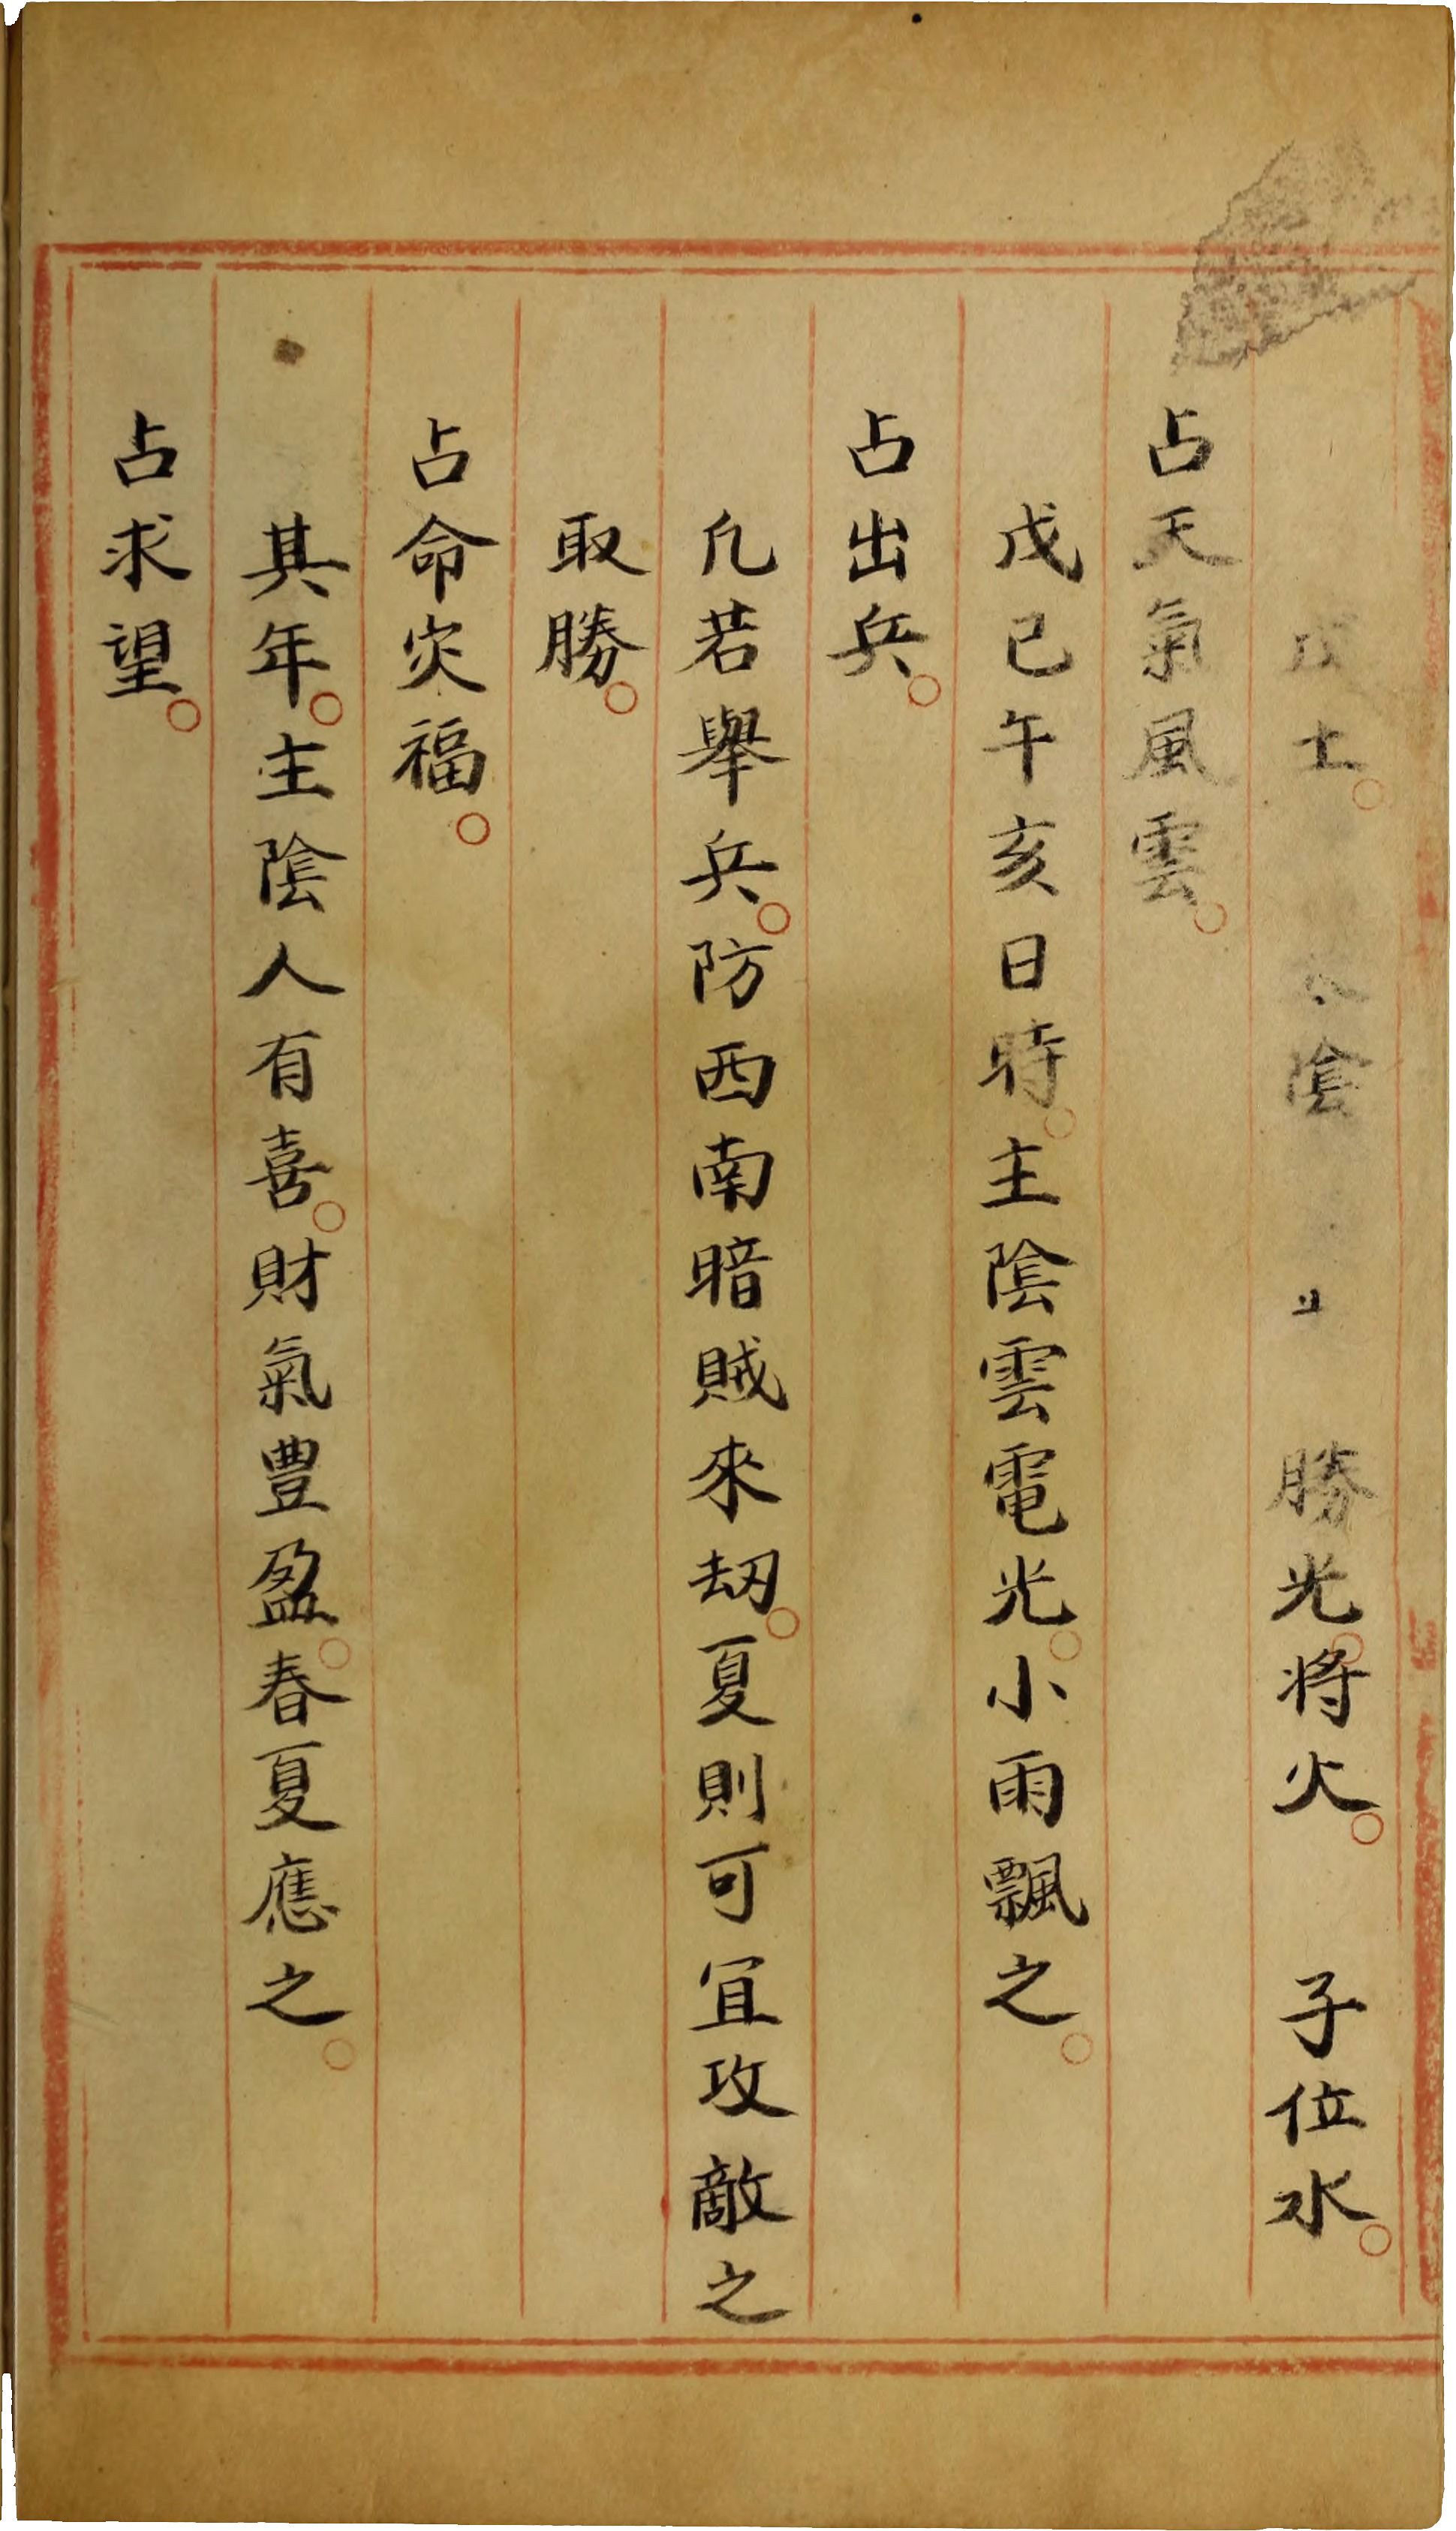 戊土。陰勝光。将火。子位水。
占天氣風雲。
戊己午亥日時。主陰雲電光。小雨飄之。
占出兵。
凡若舉兵。防西南暗賊來刼。夏則可宜攻敵之
取勝。
占命灾福。
其年。主陰人有喜。財氣豊盈。春夏應之。
占求望。